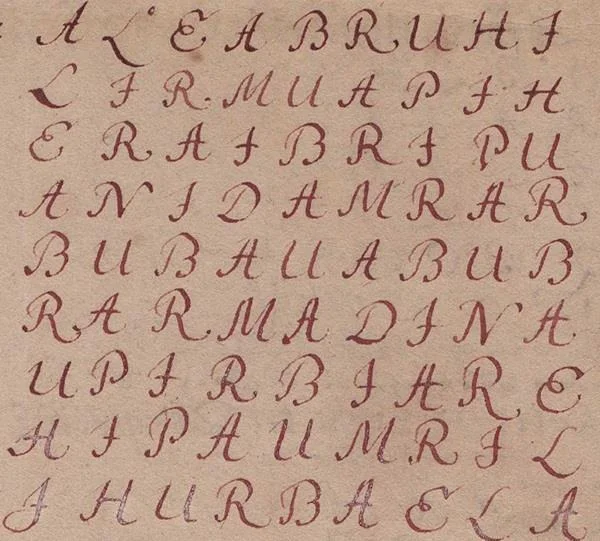 A L E A B R U H I
L I R M U A P I H
E R A I B R I P U
A N I D A M R A R
B U B A U A B U B
R A R M A D I N A
U P I R B I A R E
H I P A U M R I L
I H U R B A E L A